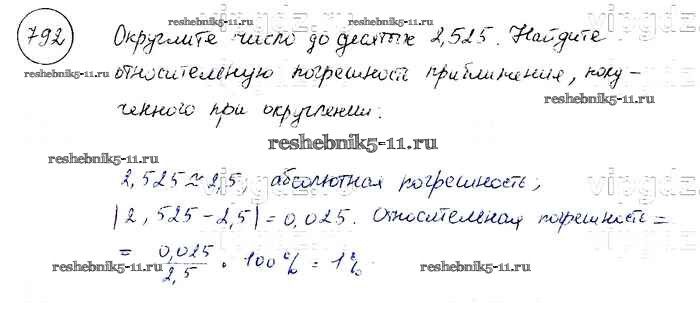 792 Округлите число до десятых 2,525. Найдите
относительную погрешность приближения, полу-
ченного при округлении.
2,525 ≈ 2,5, абсолютная погрешность;
|2,525 - 2,5| = 0,025. Относительная погрешность =
= 0,025/2,5 · 100% = 1%
reshebnik5-11.ru
reshebnik5-11.ru
reshebnik5-11.ru
reshebnik5-11.ru
reshebnik5-11.ru
reshebnik5-11.ru
reshebnik5-11.ru
reshebnik5-11.ru